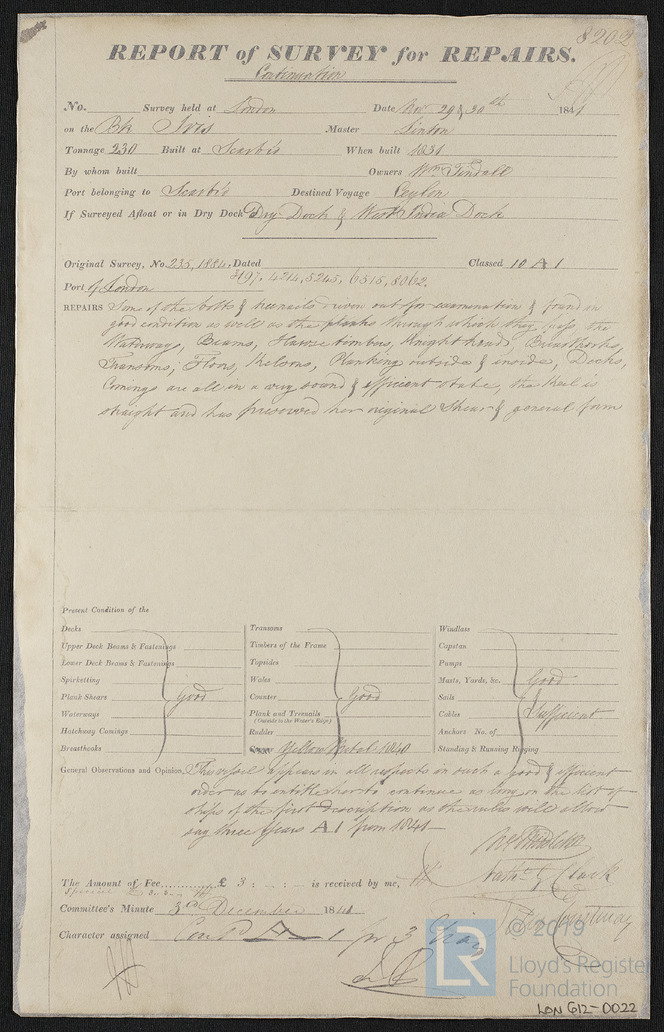 8202
REPORT of SURVEY for REPAIRS.
Continuation
No. Survey held at London Date Nov 29 & 30th 1841
on the Bk Iris Master Linton
Tonnage 230 Built at Scarbro When built 1831
By whom built Owners Wm Tindall
Port belonging to Scarbro Destined Voyage Ceylon
If Surveyed Afloat or in Dry Dock Dry Dock & West India Dock
Original Survey, No. 235, 1834, Dated Classed 10 A 1
3197. 4214, 5245, 6515, 8062.
Port of London
REPAIRS Some of the bolts & treenails driven out for examination & found in
good condition as well as the planks through which they pass the
Waterways, Beams, Hawse timbers, Knightheads, Breasthooks,
Transoms, Floors, Kelsons, Planking outside & inside, Decks,
Comings are all in a very sound & efficient state, the keel is
straight and has preserved her original Shear & general form
Present Condition of the
Decks
Upper Deck Beams & Fastenings
Lower Deck Beams & Fastenings
Spirketting
Plank Shears good
Waterways
Hatchway Comings
Breasthooks
Transoms
Timbers of the Frame
Topsides
Wales
Counter Good
Plank and Treenails
(Outside to the Water's Edge)
Rudder
Copper Yellow Metal 1840
Windlass
Capstan
Pumps
Masts, Yards, &c. Good
Sails
Cables Sufficient
Anchors No. of
Standing & Running Rigging
General Observations and Opinion, This vessel appears in all respects in such a good & efficient
order as to entitle her to continue as long on the list of
ships of the first description as the rules will allow
say three Years A 1 from 1841
Nathl G Clark
The Amount of Fee £ 3 : - : - is received by me,
Special
Committee's Minute 3rd December 1841
Character assigned Contd A 1 for 3 Years
© 2019
LR
Lloyd's Register
Foundation
LON 612-0022